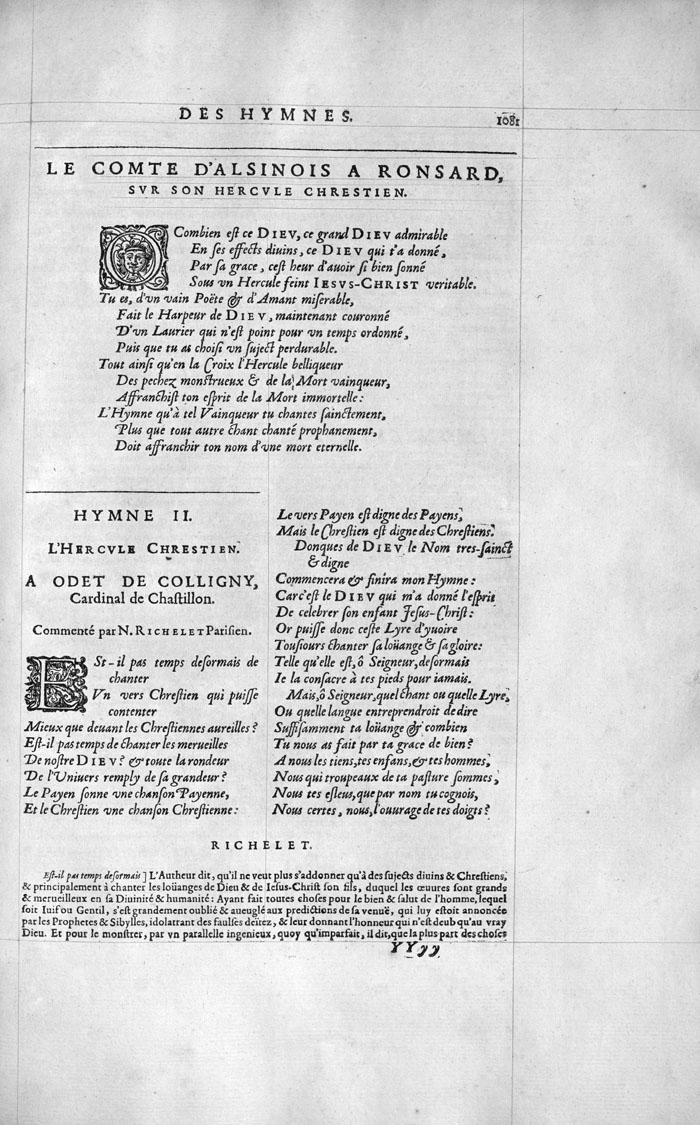 DES HYMNES.
1081
LE COMTE D'ALSINOIS A RONSARD,
SVR SON HERCVLE CHRESTIEN.
O Combien est ce DIEV, ce grand DIEV admirable
En ses effects diuins, ce DIEV qui t'a donné,
Par sa grace, cest heur d'auoir si bien sonné
Sous vn Hercule feint IESVS-CHRIST veritable.
Tu es, d'vn vain Poëte & d'Amant miserable,
Fait le Harpeur de DIEV, maintenant couronné
D'vn Laurier qui n'est point pour vn temps ordonné,
Puis que tu as choisi vn suject perdurable.
Tout ainsi qu'en la Croix l'Hercule belliqueur
Des pechez monstrueux & de la Mort vainqueur,
Affranchist ton esprit de la Mort immortelle:
L'Hymne qu'à tel Vainqueur tu chantes sainctement,
Plus que tout autre chant chanté prophanement,
Doit affranchir ton nom d'vne mort eternelle.
HYMNE II.
L'HERCVLE CHRESTIEN.
A ODET DE COLLIGNY,
Cardinal de Chastillon.
Commenté par N. RICHELET Parisien.
ESt-il pas temps desormais de
chanter
Vn vers Chrestien qui puisse
contenter
Mieux que deuant les Chrestiennes aureilles?
Est-il pas temps de chanter les merueilles
De nostre DIEV? & toute la rondeur
De l'Vniuers remply de sa grandeur?
Le Payen sonne vne chanson Payenne,
Et le Chrestien vne chanson Chrestienne:
Le vers Payen est digne des Payens,
Mais le Chrestien est digne des Chrestiens.
Donques de DIEV le Nom tres-sainct
& digne
Commencera & finira mon Hymne:
Car c'est le DIEV qui m'a donné l'esprit
De celebrer son enfant Jesus-Christ:
Or puisse donc ceste Lyre d'yuoire
Tousiours chanter sa loüange & sa gloire:
Telle qu'elle est, ô Seigneur, desormais
Ie la consacre à tes pieds pour iamais.
Mais, ô Seigneur, quel chant ou quelle Lyre,
Ou quelle langue entreprendroit de dire
Suffisamment ta loüange & combien
Tu nous as fait par ta grace de bien?
A nous les tiens, tes enfans, & tes hommes,
Nous qui troupeaux de ta pasture sommes,
Nous tes esleus, que par nom tu cognois,
Nous certes, nous, l'ouurage de tes doigts?
RICHELET.
Est-il pas temps desormais] L'Autheur dit, qu'il ne veut plus s'addonner qu'à des sujects diuins & Chrestiens,
& principalement à chanter les loüanges de Dieu & de Iesus-Christ son fils, duquel les œuures sont grands
& merueilleux en sa Diuinité & humanité: Ayant fait toutes choses pour le bien & salut de l'homme, lequel
soit Iuif ou Gentil, s'est grandement oublié & aueuglé aux predictions de sa venuë, qui luy estoit annoncée
par les Prophetes & Sibylles, idolatrant des faulses deitez, & leur donnant l'honneur qui n'est deub qu'au vray
Dieu. Et pour le monstrer, par vn parallelle ingenieux, quoy qu'imparfait, il dit, que la plus part des choses
YYyy